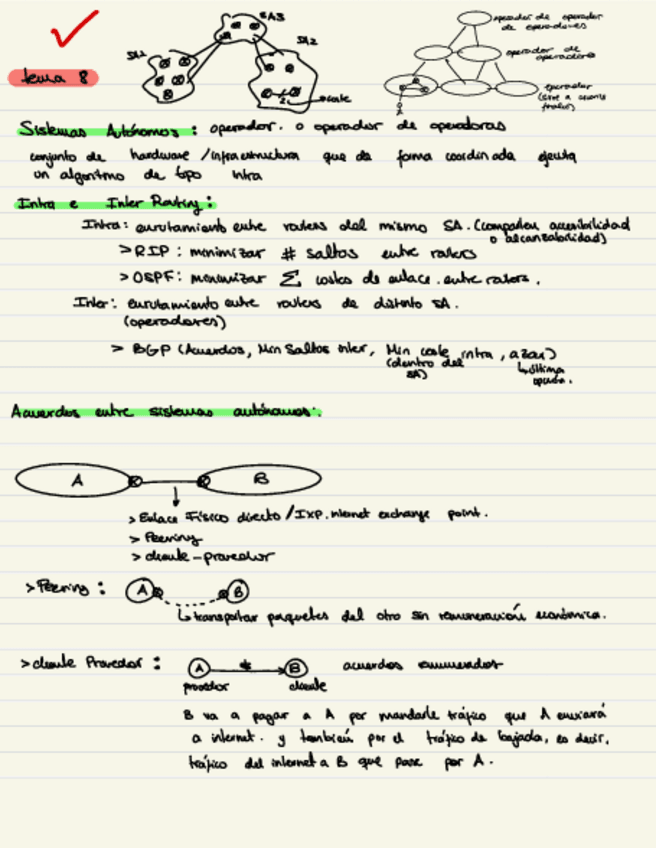 SA3
SA1
SA2
operador de operador
de operadores
operador de
operadores
operador
tema 8
Sistemas Autónomos: operador. o operador de operadoras
conjunto de hardware /infraestructura que de forma coordinada ejecuta
un algoritmo de tipo intra
Intra e Inter Routing:
Intra: enrutamiento entre routers del mismo SA. (comparten accesibilidad
o alcanzabilidad)
> RIP: minimizar # saltos entre routers
> OSPF: minimizar Σ costes de enlace entre routers.
Inter: enrutamiento entre routers de distinto SA.
(operadores)
> BGP (Acuerdos, Min Saltos inter, Min coste intra, azar)
(dentro del
SA)
última
opción.
Acuerdos entre sistemas autónomos:
A
B
> Enlace Físico directo / IXP. internet exchange point.
> Peering
> cliente-proveedor
> Peering:
A
B
transportar paquetes del otro sin remuneración económica.
> cliente Provedor:
A
B
acuerdos remunerados
cliente
B va a pagar a A por mandarle tráfico que A enviará
a internet. y también por el tráfico de bajada, es decir,
tráfico del internet a B que pase por A.